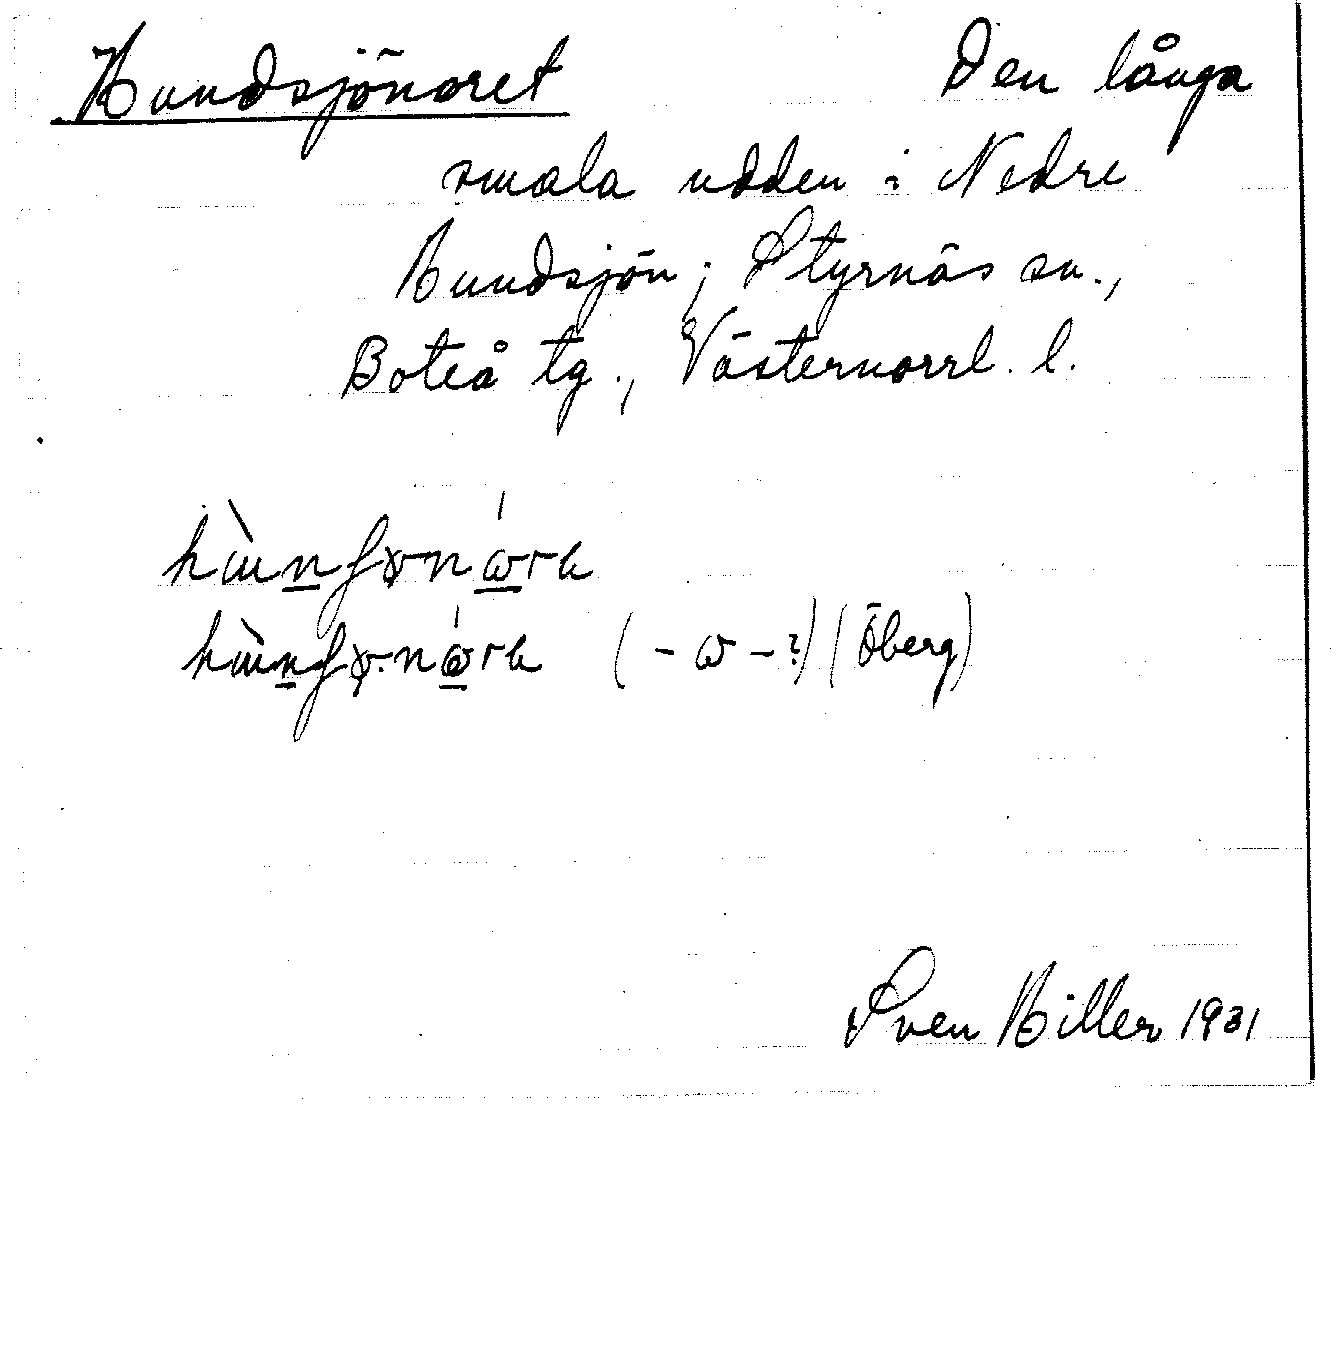 Hundsjönoret Den långa
smala udden i Nedre
Hundsjön; Styrnäs sn.,
Boteå tg., Västernorrl. l.
(-ω-?) (Öberg)
Sven Hiller 1931